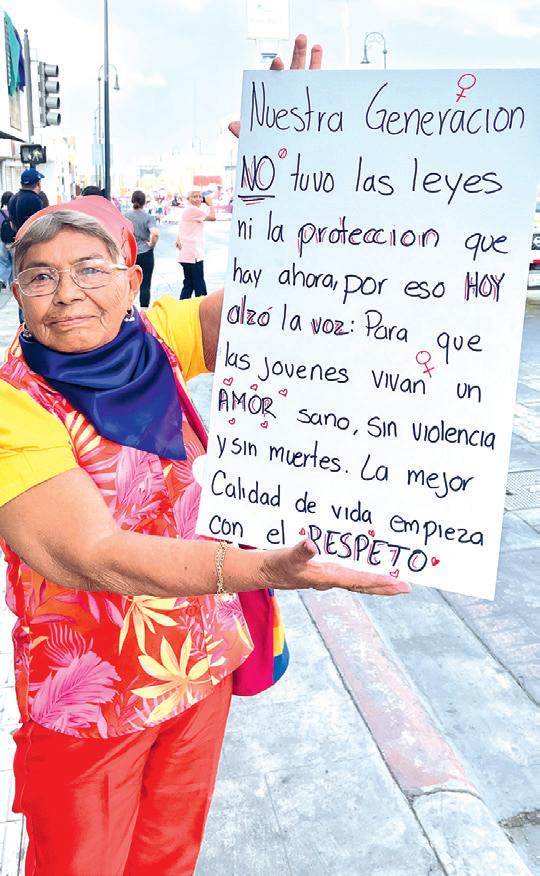 Nuestra Generacion
NO tuvo las leyes
ni la proteccion que
hay ahora, por eso HOY
alzó la voz: Para que
las jovenes vivan un
AMOR sano, sin violencia
y sin muertes. La mejor
Calidad de vida empieza
con el RESPETO